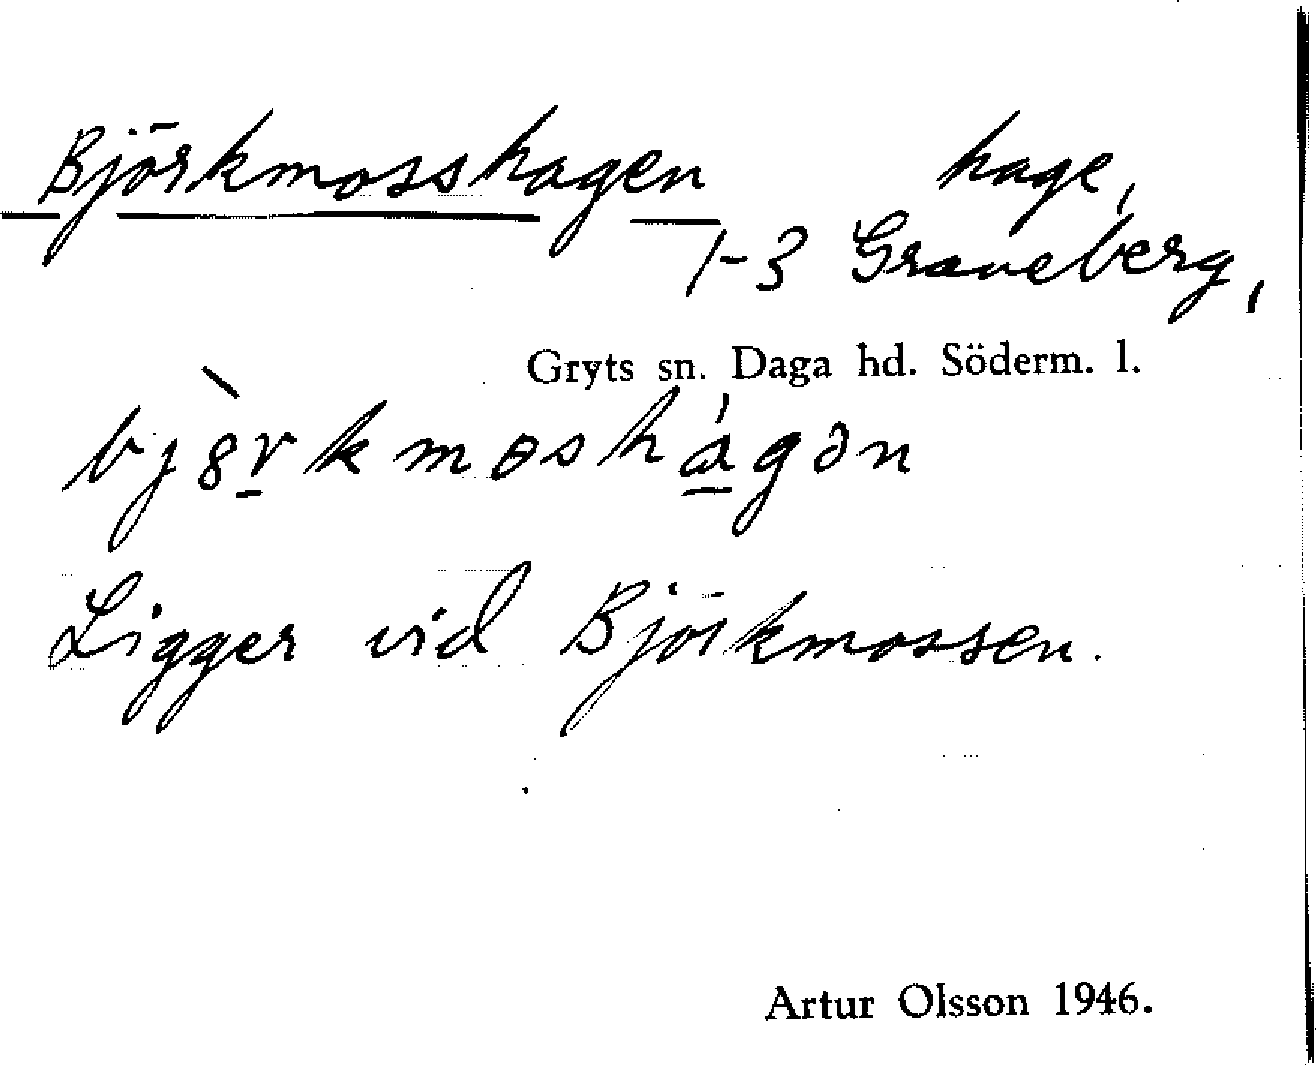 Björkmosshagen hage,
1-3 Graneberg,
Gryts sn. Daga hd. Söderm. l.
bjȣ̀r̲kmɵshá̲gən
Ligger vid Björkmossen.
Artur Olsson 1946.